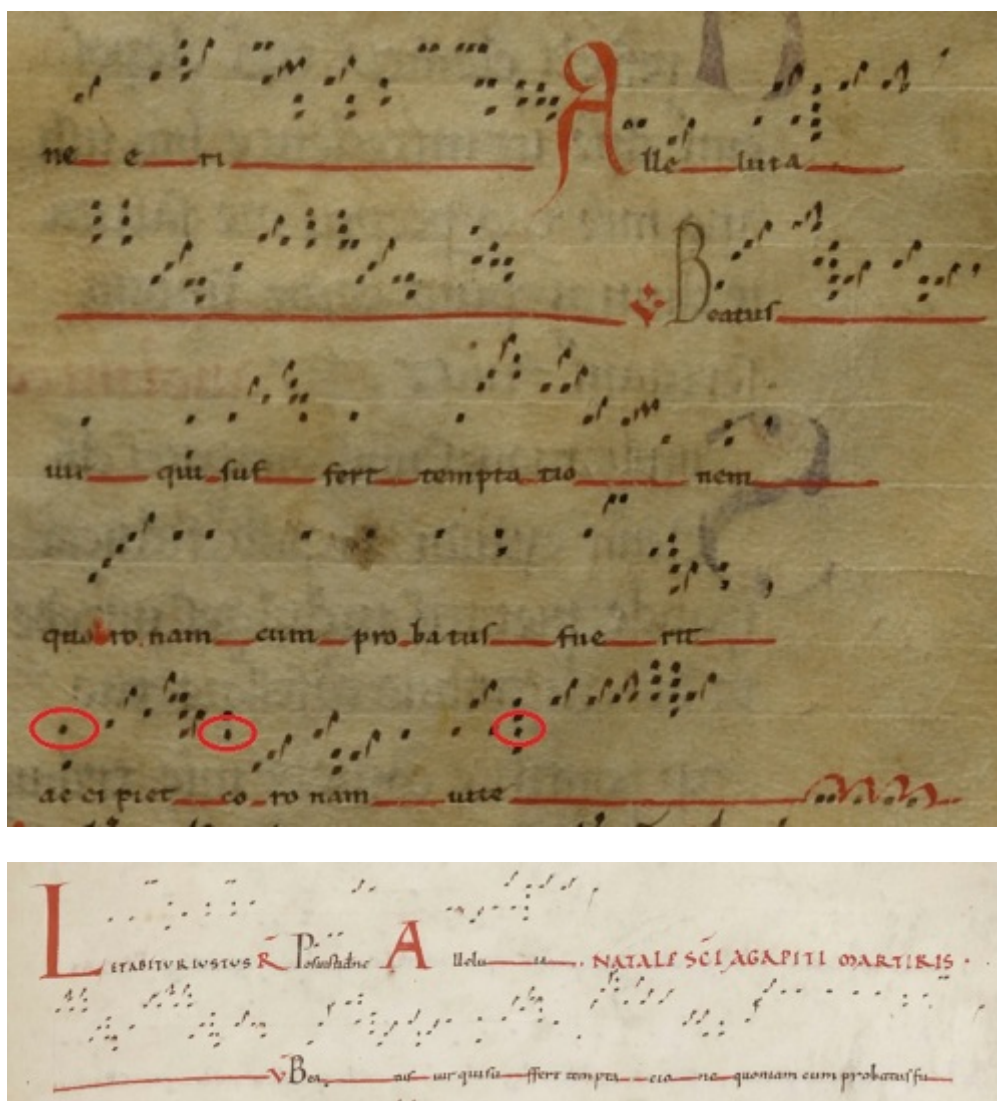 ne e ri Alle luia
℣ Beatus
uir qui suf fert tempta tio nem
quo ro nam cum pro ba tus fue rit
ac ci piet co ro nam uite
LETABITVR IVSTVS R Posuisti dne Allelu ia . NATALE SCI AGAPITI MARTIRIS .
V Bea tus uir qui su ffert tempta cio ne quoniam cum probatus fu